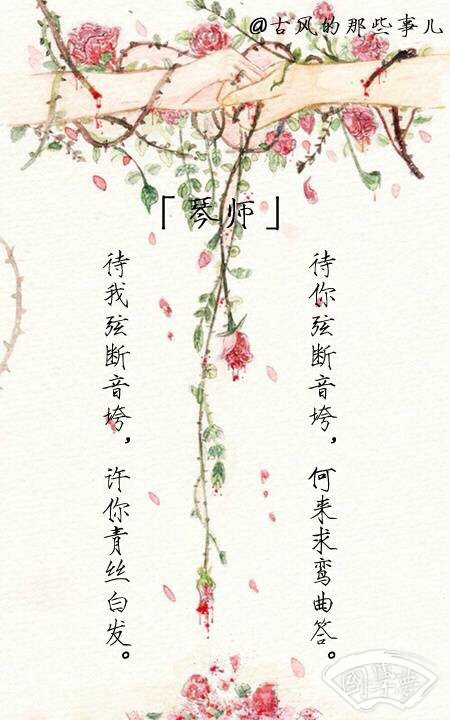 @古风的那些事儿
「琴师」
待我弦断音垮，许你青丝白发。
待你弦断音垮，何来求鸾曲答。
國學夢